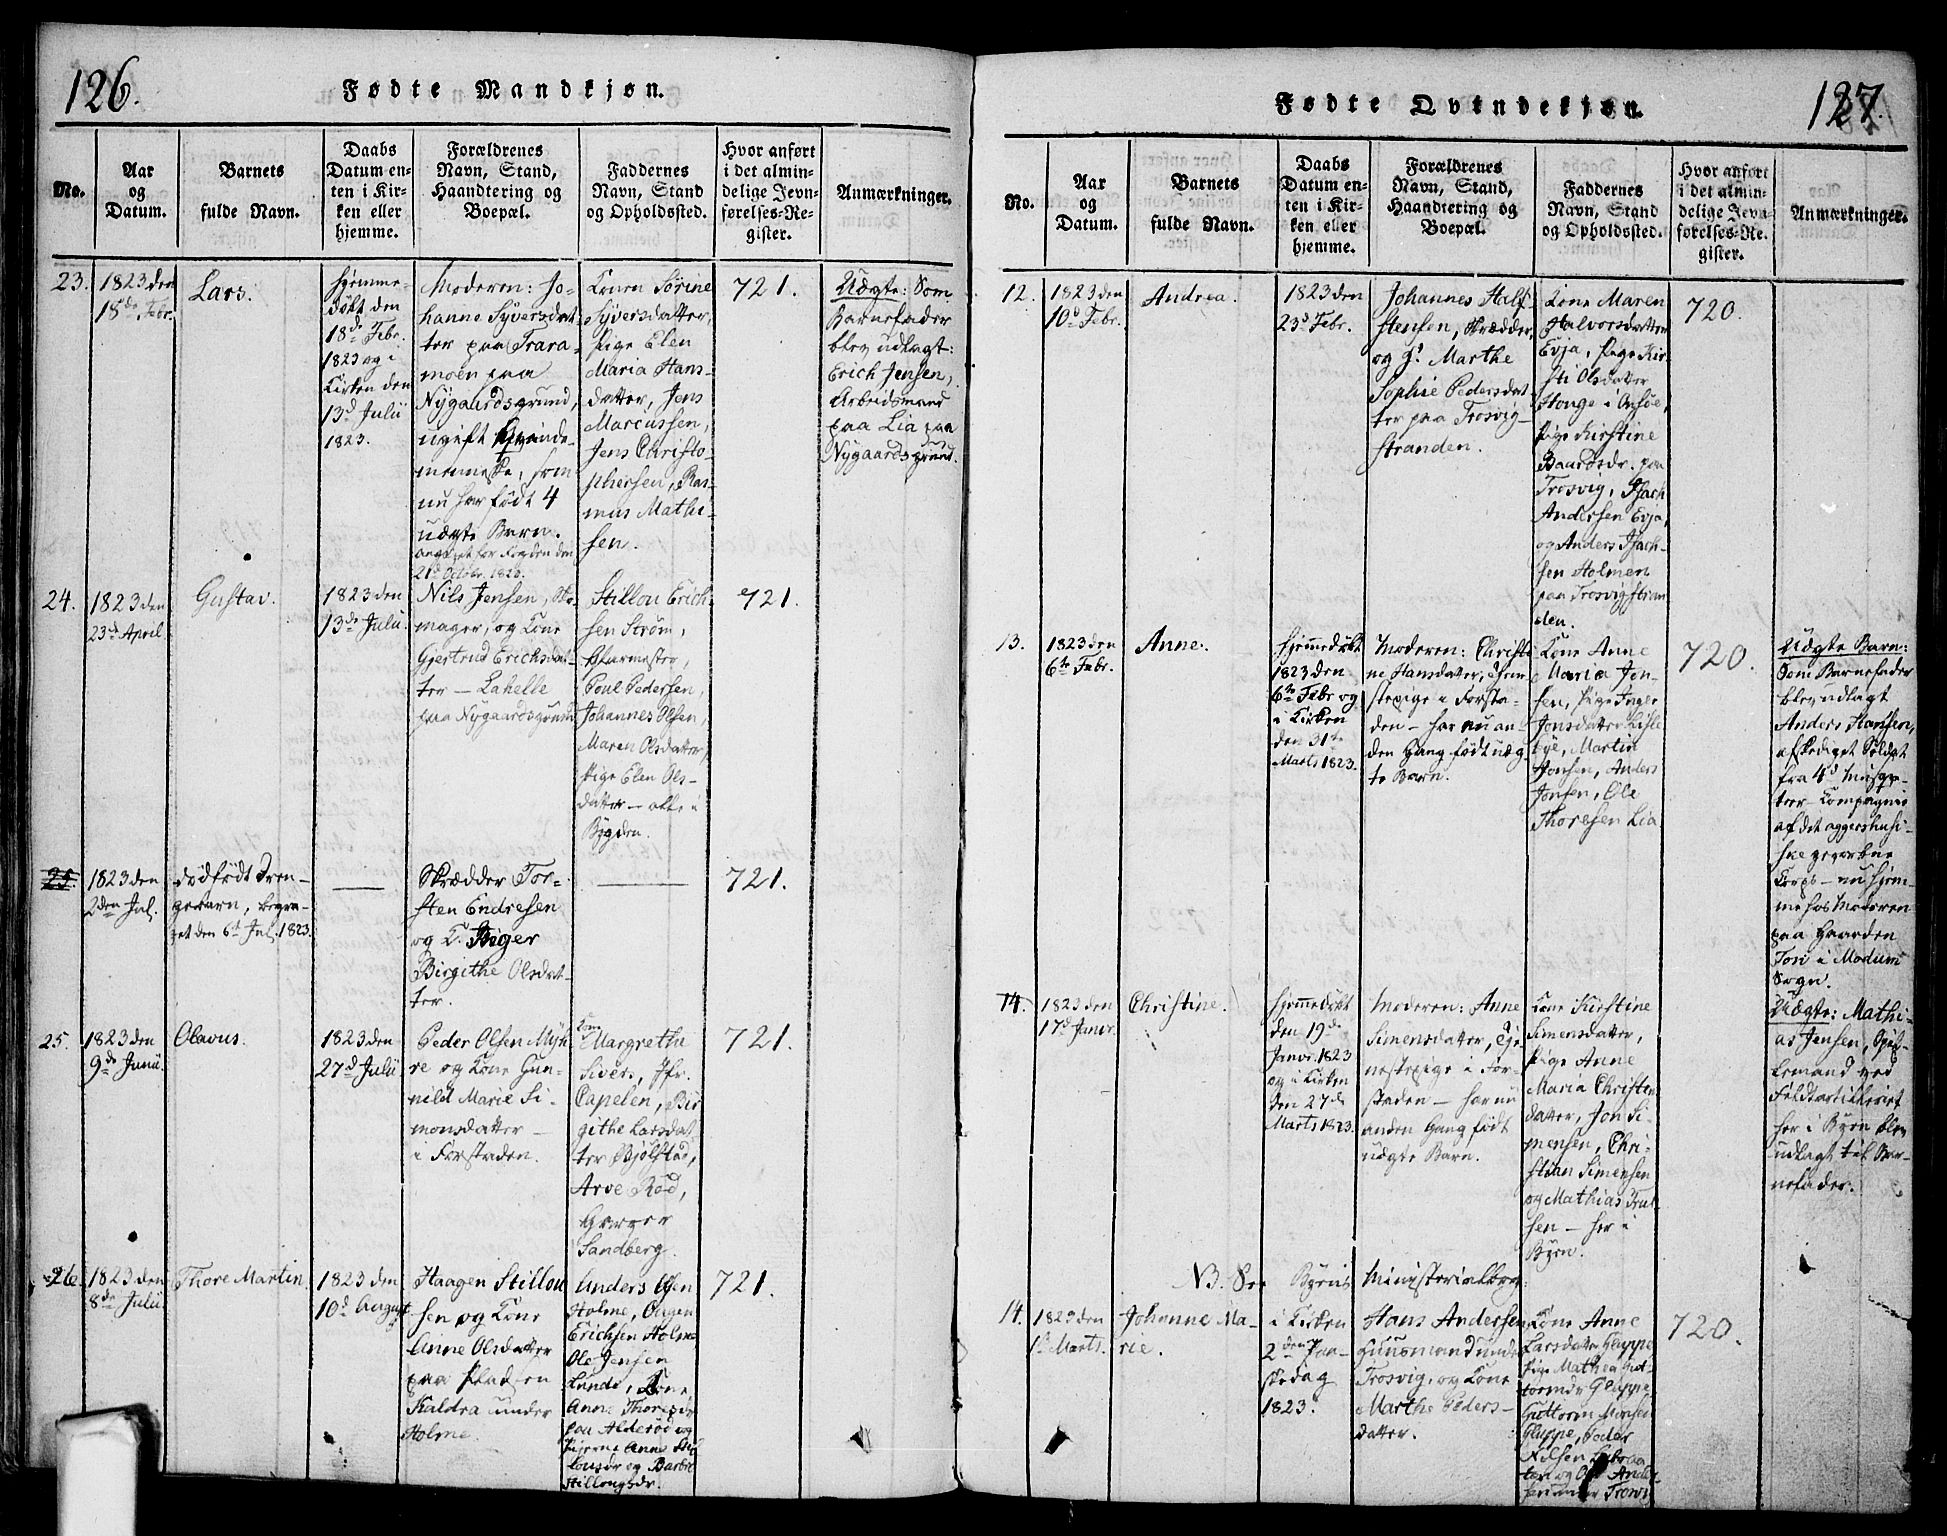 126.
Fødte Mandkjøn.
No.
Aar
og
Datum.
Barnets
fulde Navn.
Daabs
Datum en-
ten i Kir-
ken eller
hjemme.
Forældrenes
Navn, Stand,
Haandtering og
Boepæl.
Faddernes
Navn, Stand
og Opholdssted.
Hvor anført
i det almin-
delige Jevn-
førelses-Re-
gister.
Anmærkninger.
23.
1823 den
18de Febr.
Lars.
hjemme-
døbt den
18de Febr.
1823 og i
Kirken den
13d Julii
1823.
Moderen: Jo-
hanne Syversdat-
ter paa Trara-
moen paa
Nygaardsgrund,
ugift Qvinde-
menneske, som
nu har født 4
uægte Børn.
21de Octobr. 1823.
Konen Sørine
Syversdatter,
Pige Elen
Maria Hans-
datter, Jens
Marcussen,
Jens Christo-
phersen, Ras-
mus Mathi-
sen.
721.
Uægte: Som
Barnefader
blev udlagt:
Erich Jensen,
Arbeidsmand
paa Lia paa
Nygaardsgrund.
24.
1823 den
23de April
Gustav.
1823 den
13de Julii.
Nils Jensen, Sko-
mager, og Kone
Gjertrud Erichsdat-
ter – Lahelle
paa Nygaardsgrund
Stillou Erich-
sen Strøm,
Poul Pedersen,
Johannes Olsen,
Maren Olsdatter,
Pige Elen Ols-
datter – alle i
Bygden.
721.
25.
1823 den
2den Jul.
dødfødt Dren-
gebarn, begra-
vet den 6te Jul. 1823.
Skrædder Tor-
sten Endresen
og K. Inger
Birgithe Olsdat-
ter.
721.
25.
1823 den
9de Junii.
Olavus.
1823 den
27de Julii
Peder Olsen Myh-
re og Kone Gun-
nild Marie Si-
monsdatter –
i Forstaden.
Kone
Margrethe
Sivers, Jfr.
Capelen, Bir-
githe Larsdat-
ter Bjølstad,
Arve Rød,
Gregger
Sandberg.
721.
26.
1823 den
8de Julii.
Thore Martin
1823 den
10de August
Haagen Stillou-
sen og Kone
Anne Olsdatter
paa Plad-en
Kaldra under
Holme.
Anders Olsen
Holme,
Erichsen Holme
Ole Jensen
Lunde, Kone
Anne Thoresdr.
paa Alderød og
Pigerne Anne Stil-
lousdr og Barbro
Stillougsdr.
721.
127.
Fødte Qvindekjøn.
No.
Aar
og
Datum.
Barnets
fulde Navn.
Daabs
Datum en-
ten i Kir-
ken eller
hjemme.
Forældrenes
Navn, Stand,
Haandtering og
Boepæl.
Faddernes
Navn, Stand
og Opholdssted.
Hvor anført
i det almin-
delige Jevn-
førelses-Re-
gister.
Anmærkninger.
12.
1823 den
10de Febr.
Andrea.
1823 den
23de Febr.
Johannes Half-
stensen, Skrædder,
og K. Marthe
Sophie Pedersdat-
ter paa Trosvig-
stranden.
Kone Maren
Halvorsdatter
Evja, Pige Kir-
sti Olsdatter
Houge i Onsøe,
Pige Kirstine
Baardsdr. paa
Trosvig, Isach
Andersen Evja,
og Anders Isach-
sen Holmen
paa Trosvigstran-
den.
720.
13.
1823 den
6te Febr.
Anne.
hjemmedøbt
1823 den
6te Febr og
i Kirken
den 31te
Marts 1823.
Moderen: Christi-
ne Hansdatter, Tjene-
stepige i Forsta-
den – har nu an-
den Gang født uæg-
te Barn.
Kone Anne
Maria Jon-
sen, Pige Inger
Jonsdatter Lisle-
bye, Martin
Jonsen, Anders
Jonsen, Ole
Thoresen Lia
720.
Uægte Barn:
Som Barnefader
blev udlagt
Anders Hansen,
afskediget Soldat
fra 4de Musqve-
teer-Compagnie
af det aggershusi-
ske gevorbne
Corps – nu hjem-
me hos Moderen
paa Gaarden
Tosi i Modum
Sogn.
14.
1823 den
17de Janvr.
Christine.
hjemmedøbt
den 19de
Janvr. 1823
og i Kirken
den 27de
Marts 1823.
Moderen: Anne
Simensdatter, Tje-
nestepige i For-
staden – har nu
anden Gang født
uægte Barn.
Kone Kirstine
Simensdatter,
Pige Anne
Maria Christen-
datter, Jon Si-
mensen, Chri-
stian Simensen
og Mathias Trul-
sen – her i
Byen.
Uægte: Mathi-
as Jensen, Spil-
lemand ved
Feldtartilleriet
her i Byen blev
udlagt til Bar-
nefader.
NB. See Byens Ministerialbog:
14.
1823 den
1te Marts.
Johanne Ma-
rie.
i Kirken
2den Paa-
skedag
1823.
Hans Andersen,
Huusmand under
Trosvig, og Kone
Marthe Peders-
datter.
Kone Anne
Larsdatter Gluppe
Pige Mathea Gut-
tormsdr Gluppe
Guttorm Monsen
Gluppe, Peder
Nilsen
720.